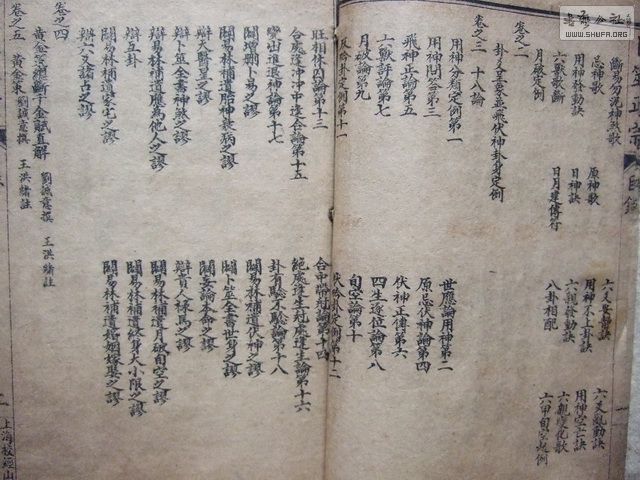 斷易勿泥神煞歌 六爻安靜訣 六爻亂動訣
忌神歌 原神歌 用神不上卦訣 用神空亡訣
用神發動訣 日神訣 六親發動訣 六親變化歌
六獸歌斷 日月建傳符 八卦相配 六甲旬空起例
月破定例
卷之二
卦爻呈象並飛伏神卦身定例
卷之三 十八論
用神分類定例第一 世應論用神第二
用神問答第三 原忌伏神論第四
飛神正論第五 伏神正傳第六
六獸評論第七 四生逐位論第八
月破論第九 旬空論第十
反吟卦定例第十一 伏吟卦定例第十二
旺相休囚論第十三 合中帶剋論第十四
合處逢沖沖中逢合論第十五 絕處逢生剋處逢生論第十六
變出進退神論第十七 卦有驗不驗論第十八
闢增刪卜易之謬 闢易林補遺伏神之謬
闢易林補遺胎神衰病之謬 闢卜筮全書世身之謬
辯天醫星之謬 闢妄論本命之謬
辯卜筮全書神煞之謬 辯貴人祿馬之謬
辯互卦 闢易林補遺月破旬空之謬
闢易林補遺應爲他人之謬 闢易林補遺身大小限之謬
闢易林補遺家宅之謬 闢易林補遺婚姻嫁娶之謬
辯六爻諸占之謬
卷之四
黃金策總斷千金賦直解 劉誠意撰 王洪緒註
卷之五 黃金策 劉誠意撰 王洪緒註
上海校經山
WWW.SHUFA.ORG